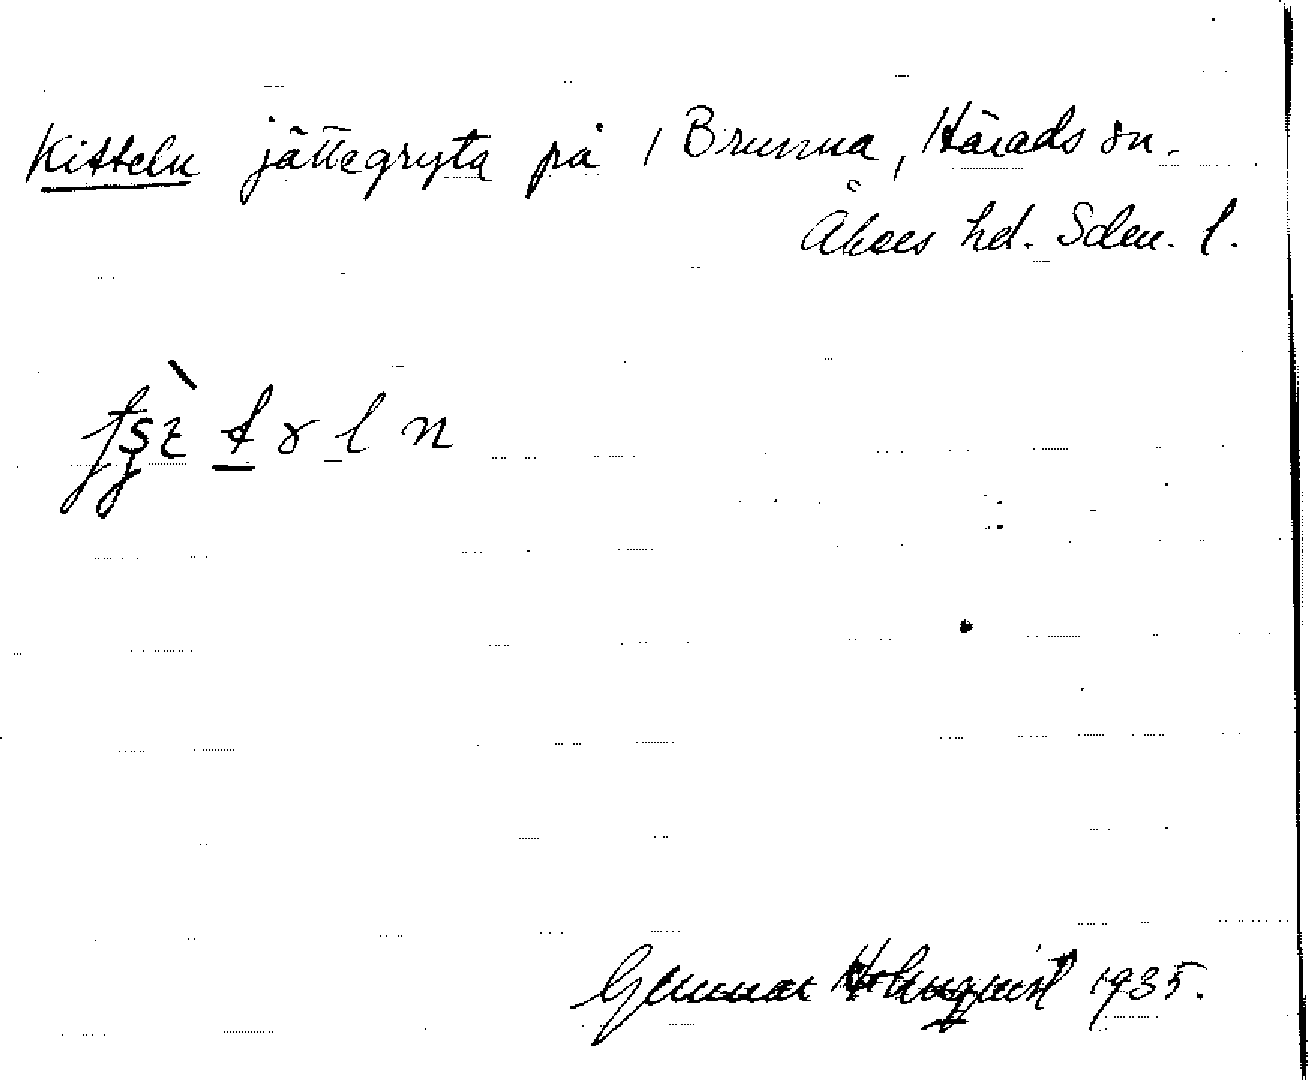 Kitteln jättegryta på 1 Brunna, Härads sn.
Åkers hd. Sdm. l.
Gunnar Holmquist 1935.